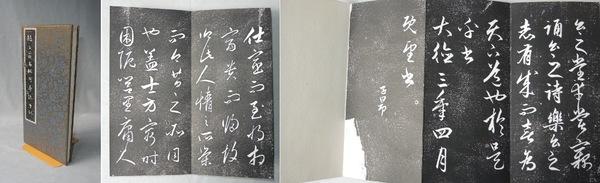 仕宦而至將相
富貴而歸故
鄉此人情之所榮
而今昔之所同
也蓋士方窮時
困阨閭里庸人
公之堂幸嘗竊
誦公之詩樂公之
志有成而喜為
天下道也於是
乎書
大德三年四月
既望書。
子昂